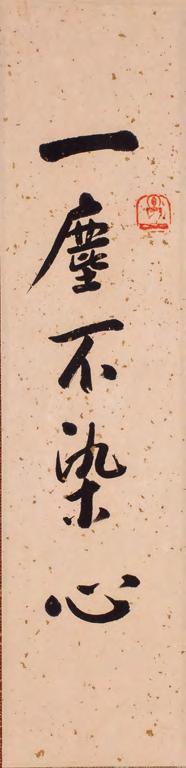 一塵不染心